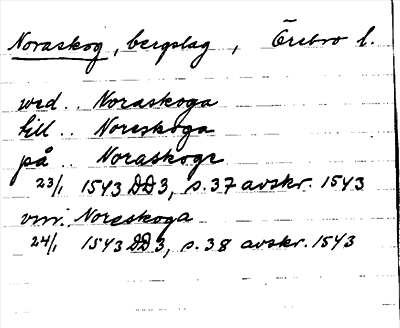 Noraskog, bergslag, Örebro l.
wed.. Noraskoga
till.. Noreskoga
på.. Noraskoge
23/1 1543 DD3, s.37 avskr. 1543
vm. Noreskoga
24/1 1543 DD3, s.38 avskr. 1543